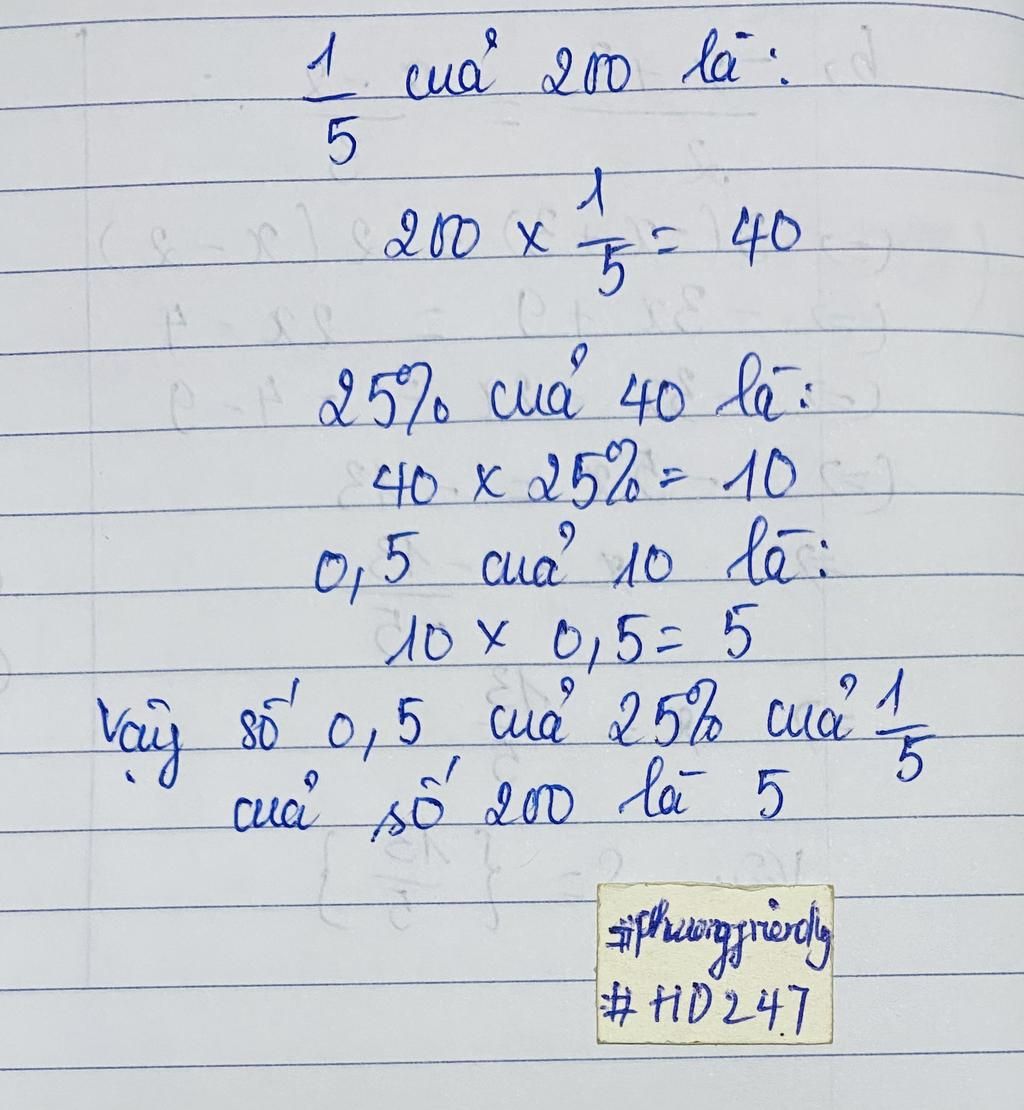 1/5 của 200 là:
200 x 1/5 = 40
25% của 40 là:
40 x 25% = 10
0,5 của 10 là:
10 x 0,5 = 5
Vậy số 0,5 của 25% của 1/5
của số 200 là 5
#Phuongfriendly
#HD247